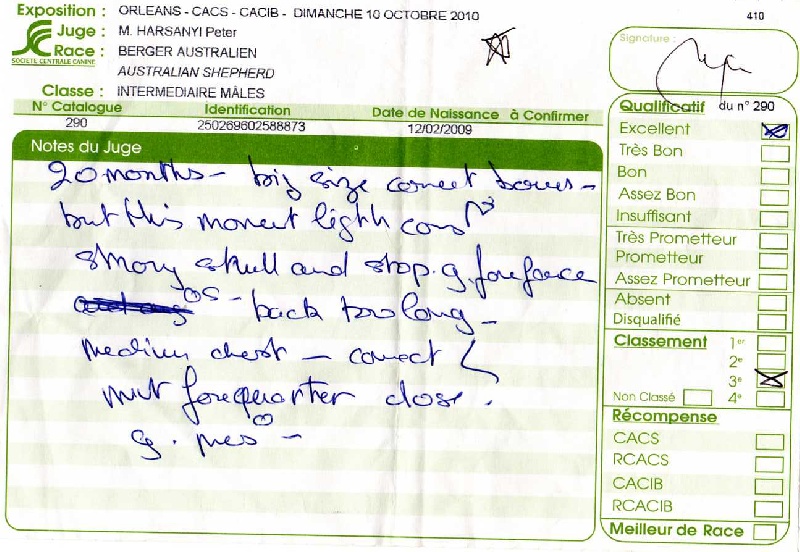 Exposition : ORLEANS - CACS - CACIB - DIMANCHE 10 OCTOBRE 2010
410
Juge : M. HARSANYI Peter
Race : BERGER AUSTRALIEN
SOCIETE CENTRALE CANINE
AUSTRALIAN SHEPHERD
Classe : INTERMEDIAIRE MÂLES
Signature :
N° Catalogue Identification Date de Naissance à Confirmer
290 250269602588873 12/02/2009
Notes du Juge
20 months - big size correct bones -
but this moment light
skull and stop. g. foreface
- back too long -
medium chest - correct
forequarter close.
g.
Qualificatif du n° 290
Excellent
Très Bon
Bon
Assez Bon
Insuffisant
Très Prometteur
Prometteur
Assez Prometteur
Absent
Disqualifié
Classement 1er
2e
3e
Non Classé 4e
Récompense
CACS
RCACS
CACIB
RCACIB
Meilleur de Race